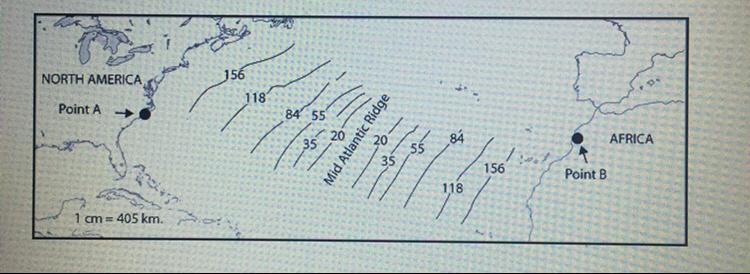 NORTH AMERICA
Point A
156
118
84
55
35
20
Mid Atlantic Ridge
20
35
55
84
118
156
AFRICA
Point B
1 cm = 405 km.